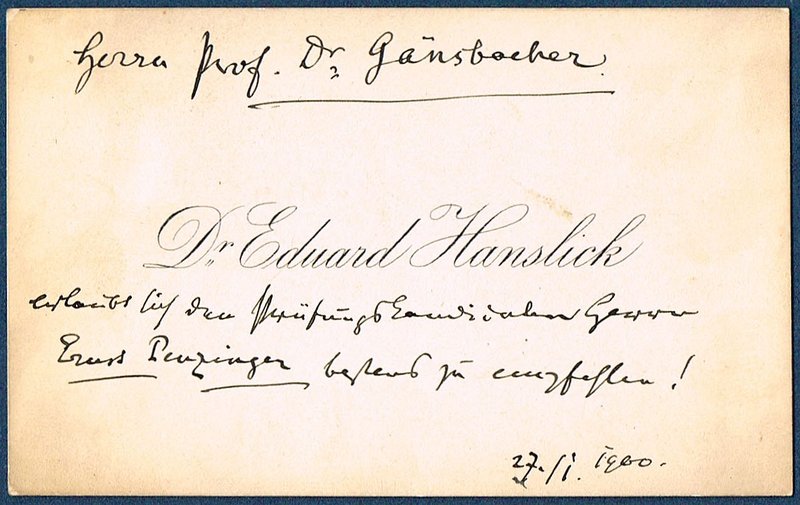 Herrn Prof. Dr Gänsbacher.
Dr. Eduard Hanslick
erlaubt sich den Prüfungskandidaten Herrn
Ernst Penzinger bestens zu empfehlen!
27./I. 1900.